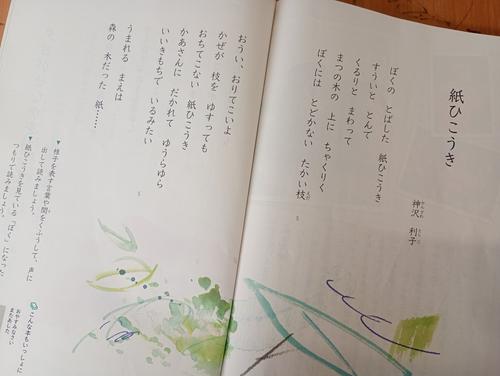 紙ひこうき
神沢 利子
かんざわ としこ
ぼくの とばした 紙ひこうき
すういと とんで
くるりと まわって
まつの木の 上に ちゃくりく
ぼくには とどかない たかい枝
えだ
5
おうい、おりてこいよ
かぜが 枝を ゆすっても
おちてこない 紙ひこうき
かあさんに だかれて ゆうらゆら
いいきもちで いるみたい
5
うまれる まえは
森の 木だった 紙……
▼様子を表す言葉や間をくふうして、声に
出して読みましょう。
▼紙ひこうきを見ている「ぼく」になった
つもりで読みましょう。
こんな本もいっしょに
おやすみなさい
またあした